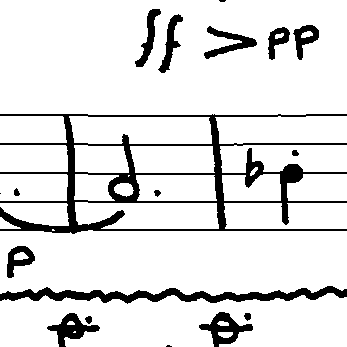 ff > pp
p